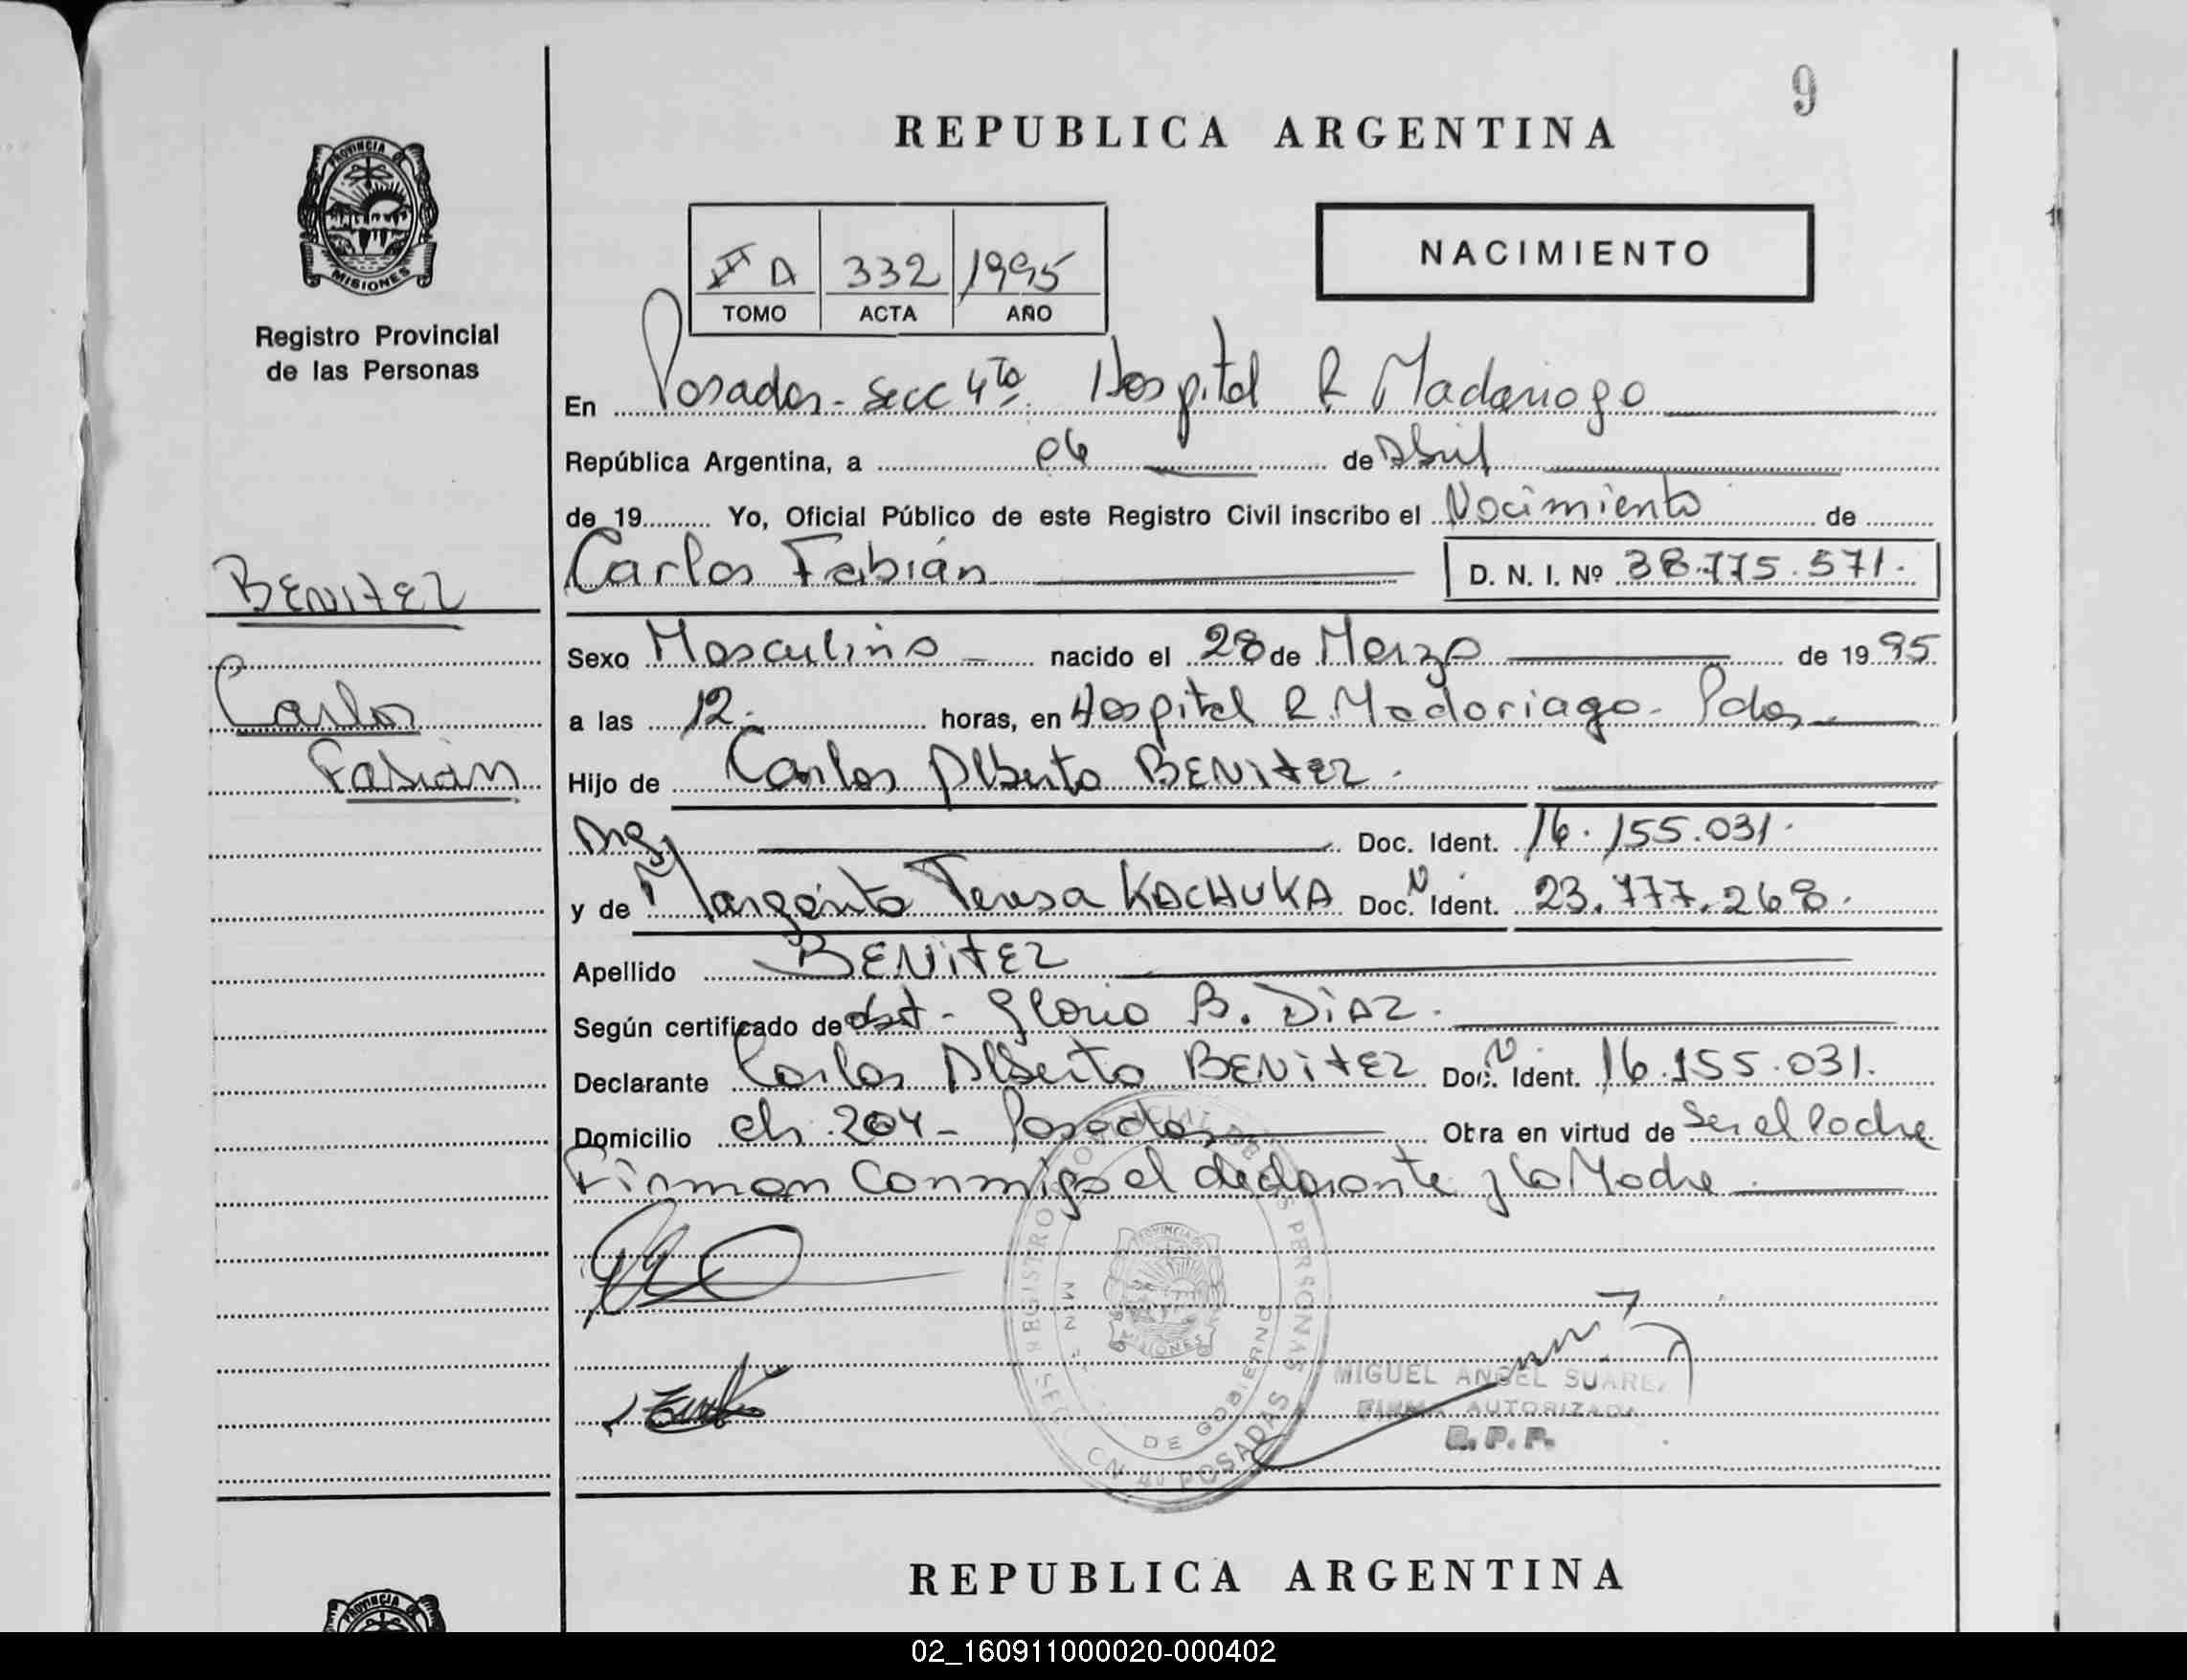 9
REPUBLICA ARGENTINA
PROVINCIA DE
MISIONES
Registro Provincial
de las Personas
II A 332 1995
TOMO ACTA AÑO
NACIMIENTO
En Posadas - Secc 4ta. Hospital R Madariaga
República Argentina, a 06 de Abril
de 19 Yo, Oficial Público de este Registro Civil inscribo el Nacimiento de
Carlos Fabián D. N. I. Nº 38.775.571.
BENITEZ
Carlos
Fabián
Sexo Masculino nacido el 28 de Marzo de 1995
a las 12. horas, en Hospital R. Madariaga - Pdas
Hijo de Carlos Alberto BENITEZ.
Arg. Doc. Ident. 16.155.031.
y de Margarita Teresa KACHUKA Doc. Ident. 23.777.268.
Apellido BENITEZ
Según certificado de obst - Gloria B. DIAZ.
Declarante Carlos Alberto BENITEZ Doc. Ident. 16.155.031.
Domicilio ch. 204 - Posadas Obra en virtud de Ser el Padre
Firman conmigo el declarante y la Madre
REGISTRO PROVINCIAL DE LAS PERSONAS
DE GOBIERNO
POSADAS
MIGUEL ANGEL SUAREZ
FIRMA AUTORIZADA
R. P. P.
REPUBLICA ARGENTINA
PROVINCIA DE
02_160911000020-000402